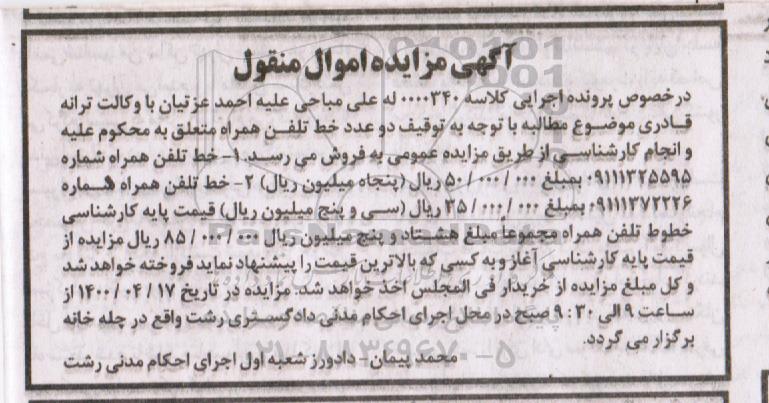 آگهی مزایده اموال منقول
درخصوص پرونده اجرایی کلاسه ۰۰۰۰۳۴۰ له علی مباحی علیه احمد عزتیان با وکالت ترانه
قادری موضوع مطالبه با توجه به توقیف دو عدد خط تلفن همراه متعلق به محکوم علیه
و انجام کارشناسی از طریق مزایده عمومی به فروش می رسد. ۱- خط تلفن همراه شماره
۰۹۱۱۱۳۲۵۵۹۵ بمبلغ ۵۰/۰۰۰/۰۰۰ ریال (پنجاه میلیون ریال) ۲- خط تلفن همراه شماره
۰۹۱۱۱۳۷۲۲۲۶ بمبلغ ۳۵/۰۰۰/۰۰۰ ریال (سی و پنج میلیون ریال) قیمت پایه کارشناسی
خطوط تلفن همراه مجموعاً مبلغ هشتاد و پنج میلیون ریال ۸۵/۰۰۰/۰۰۰ ریال مزایده از
قیمت پایه کارشناسی آغاز و به کسی که بالاترین قیمت را پیشنهاد نماید فروخته خواهد شد
و کل مبلغ مزایده از خریدار فی المجلس اخذ خواهد شد. مزایده در تاریخ ۱۴۰۰/۰۴/۱۷ از
ساعت ۹ الی ۹:۳۰ صبح در محل اجرای احکام مدنی دادگستری رشت واقع در چله خانه
برگزار می گردد.
محمد پیمان- دادورز شعبه اول اجرای احکام مدنی رشت
ParsNamadData
۰۲۱-۸۸۳۴۹۶۷۰-۵